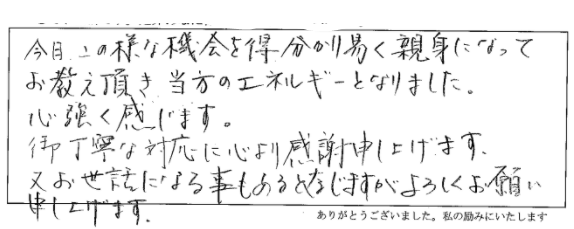 今日この様な機会を得分かり易く親身になって
お教え頂き当方のエネルギーとなりました。
心強く感じます。
御丁寧な対応に心より感謝申し上げます。
又お世話になる事もあるとなじますがよろしくお願い
申し上げます。
ありがとうございました。私の励みにいたします